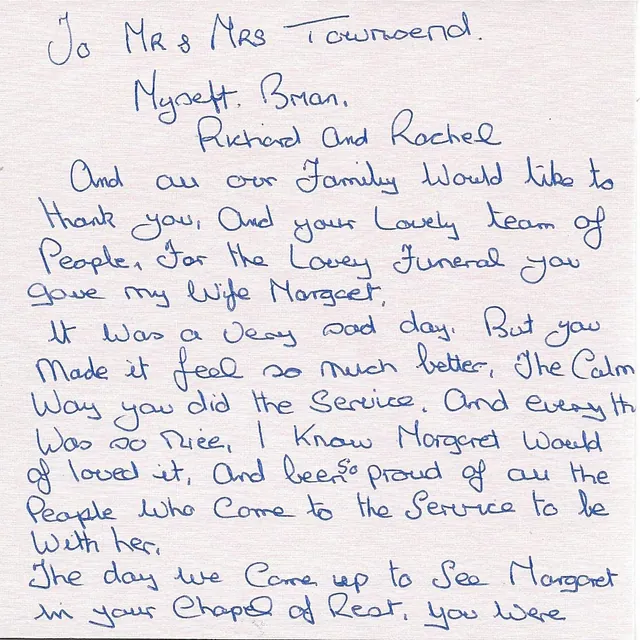 To Mr & Mrs Townsend.
Myself. Brian.
Richard And Rachel
And all our Family Would like to
thank you, And your Lovely team of
People, For the Lovey Funeral you
gave my Wife Margaret.
It was a very sad day. But you
Made it feel so much better, The Calm
Way you did the Service. And everyth
Was so Nice, I Know Margaret Would
of loved it, And been so proud of all the
People who Come to the Service to be
With her.
The day we Came up to See Margaret
in your Chapel of Rest, you Were